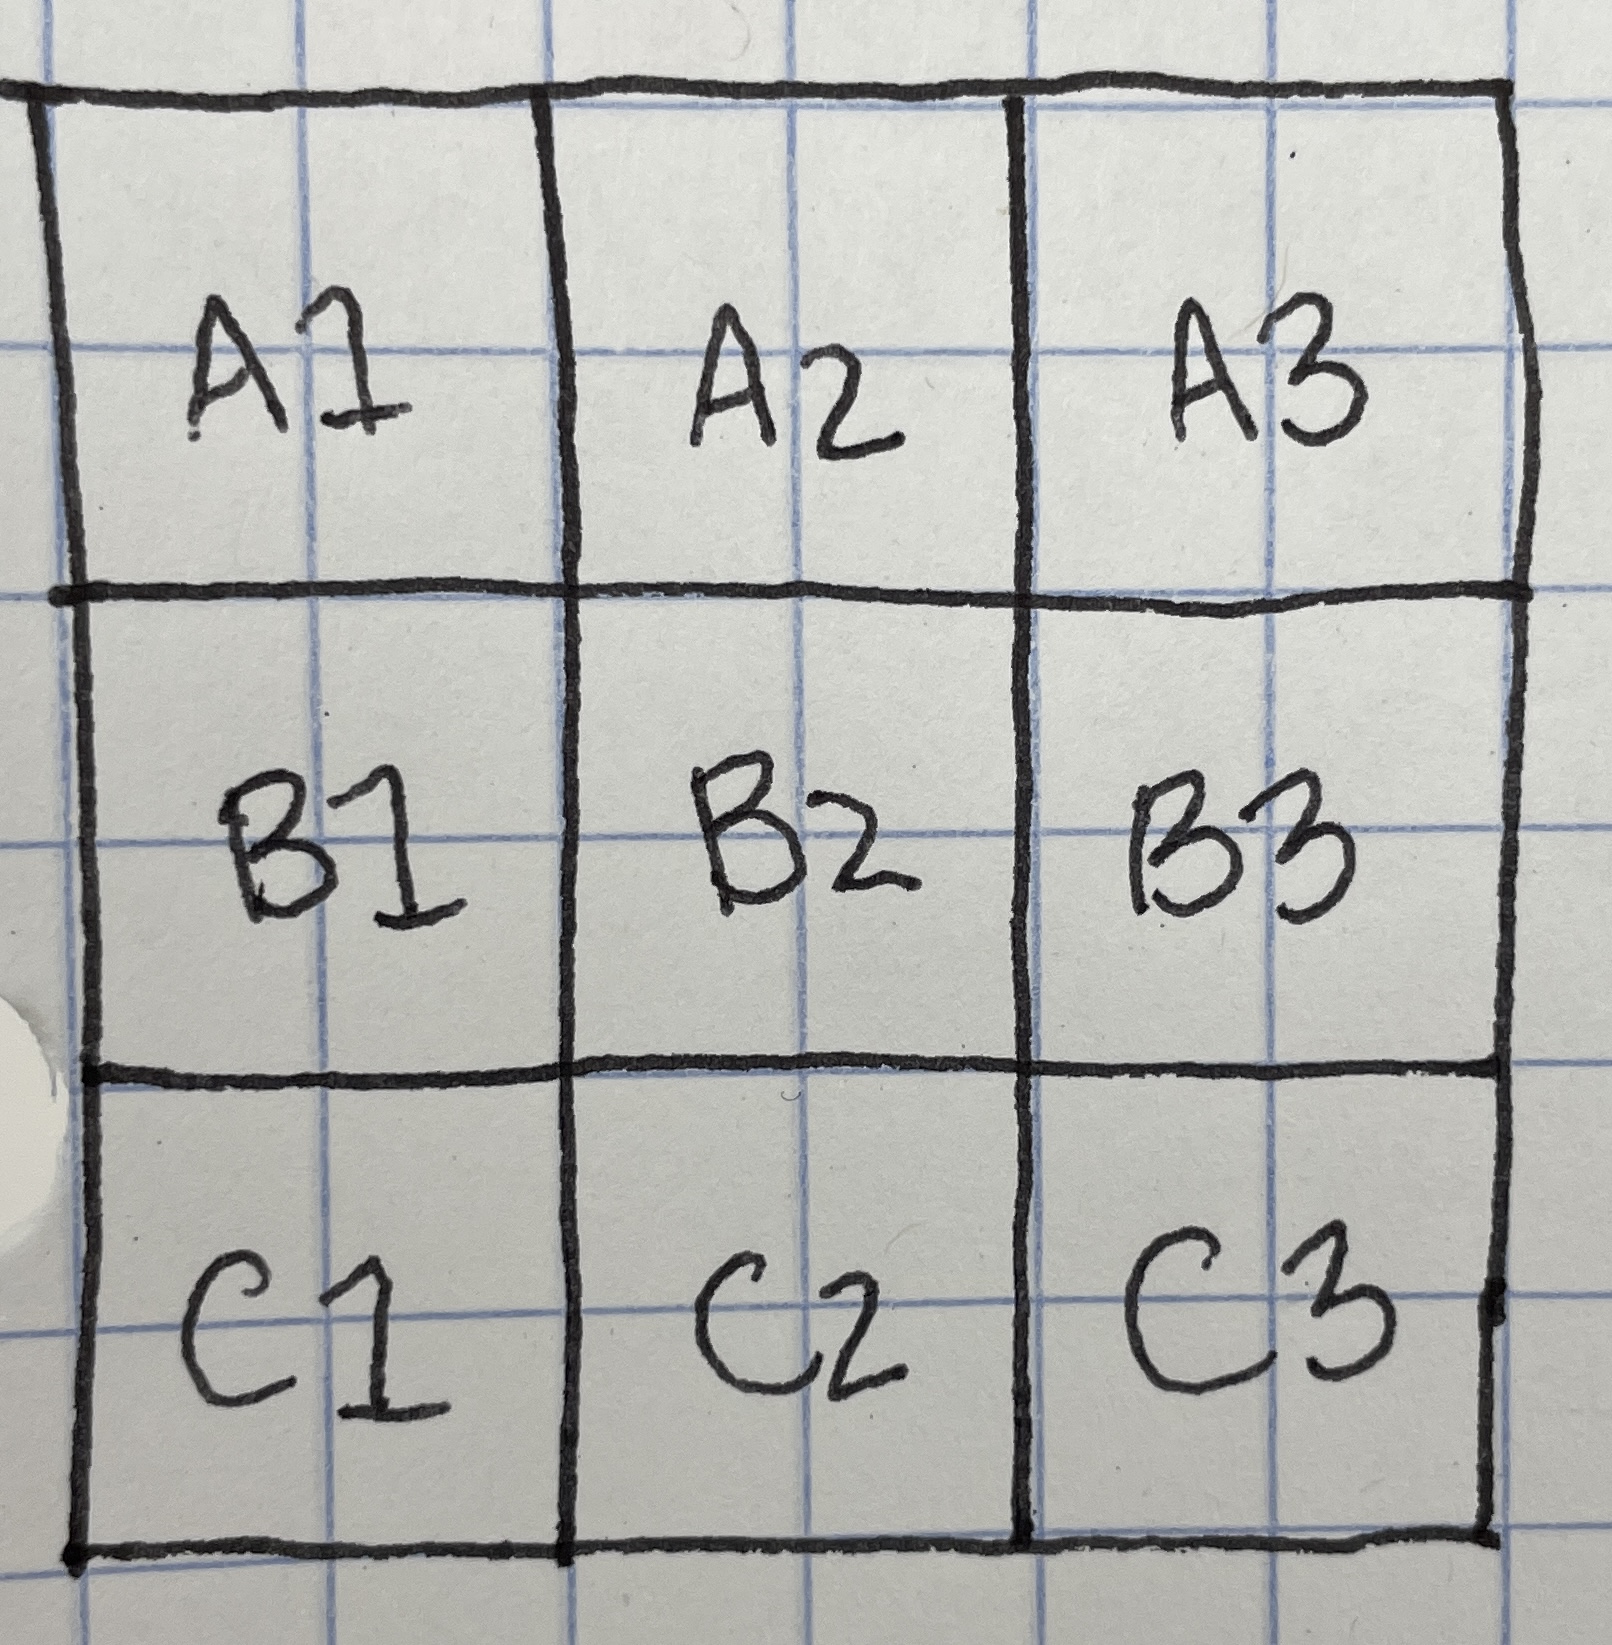 A1 A2 A3
B1 B2 B3
C1 C2 C3